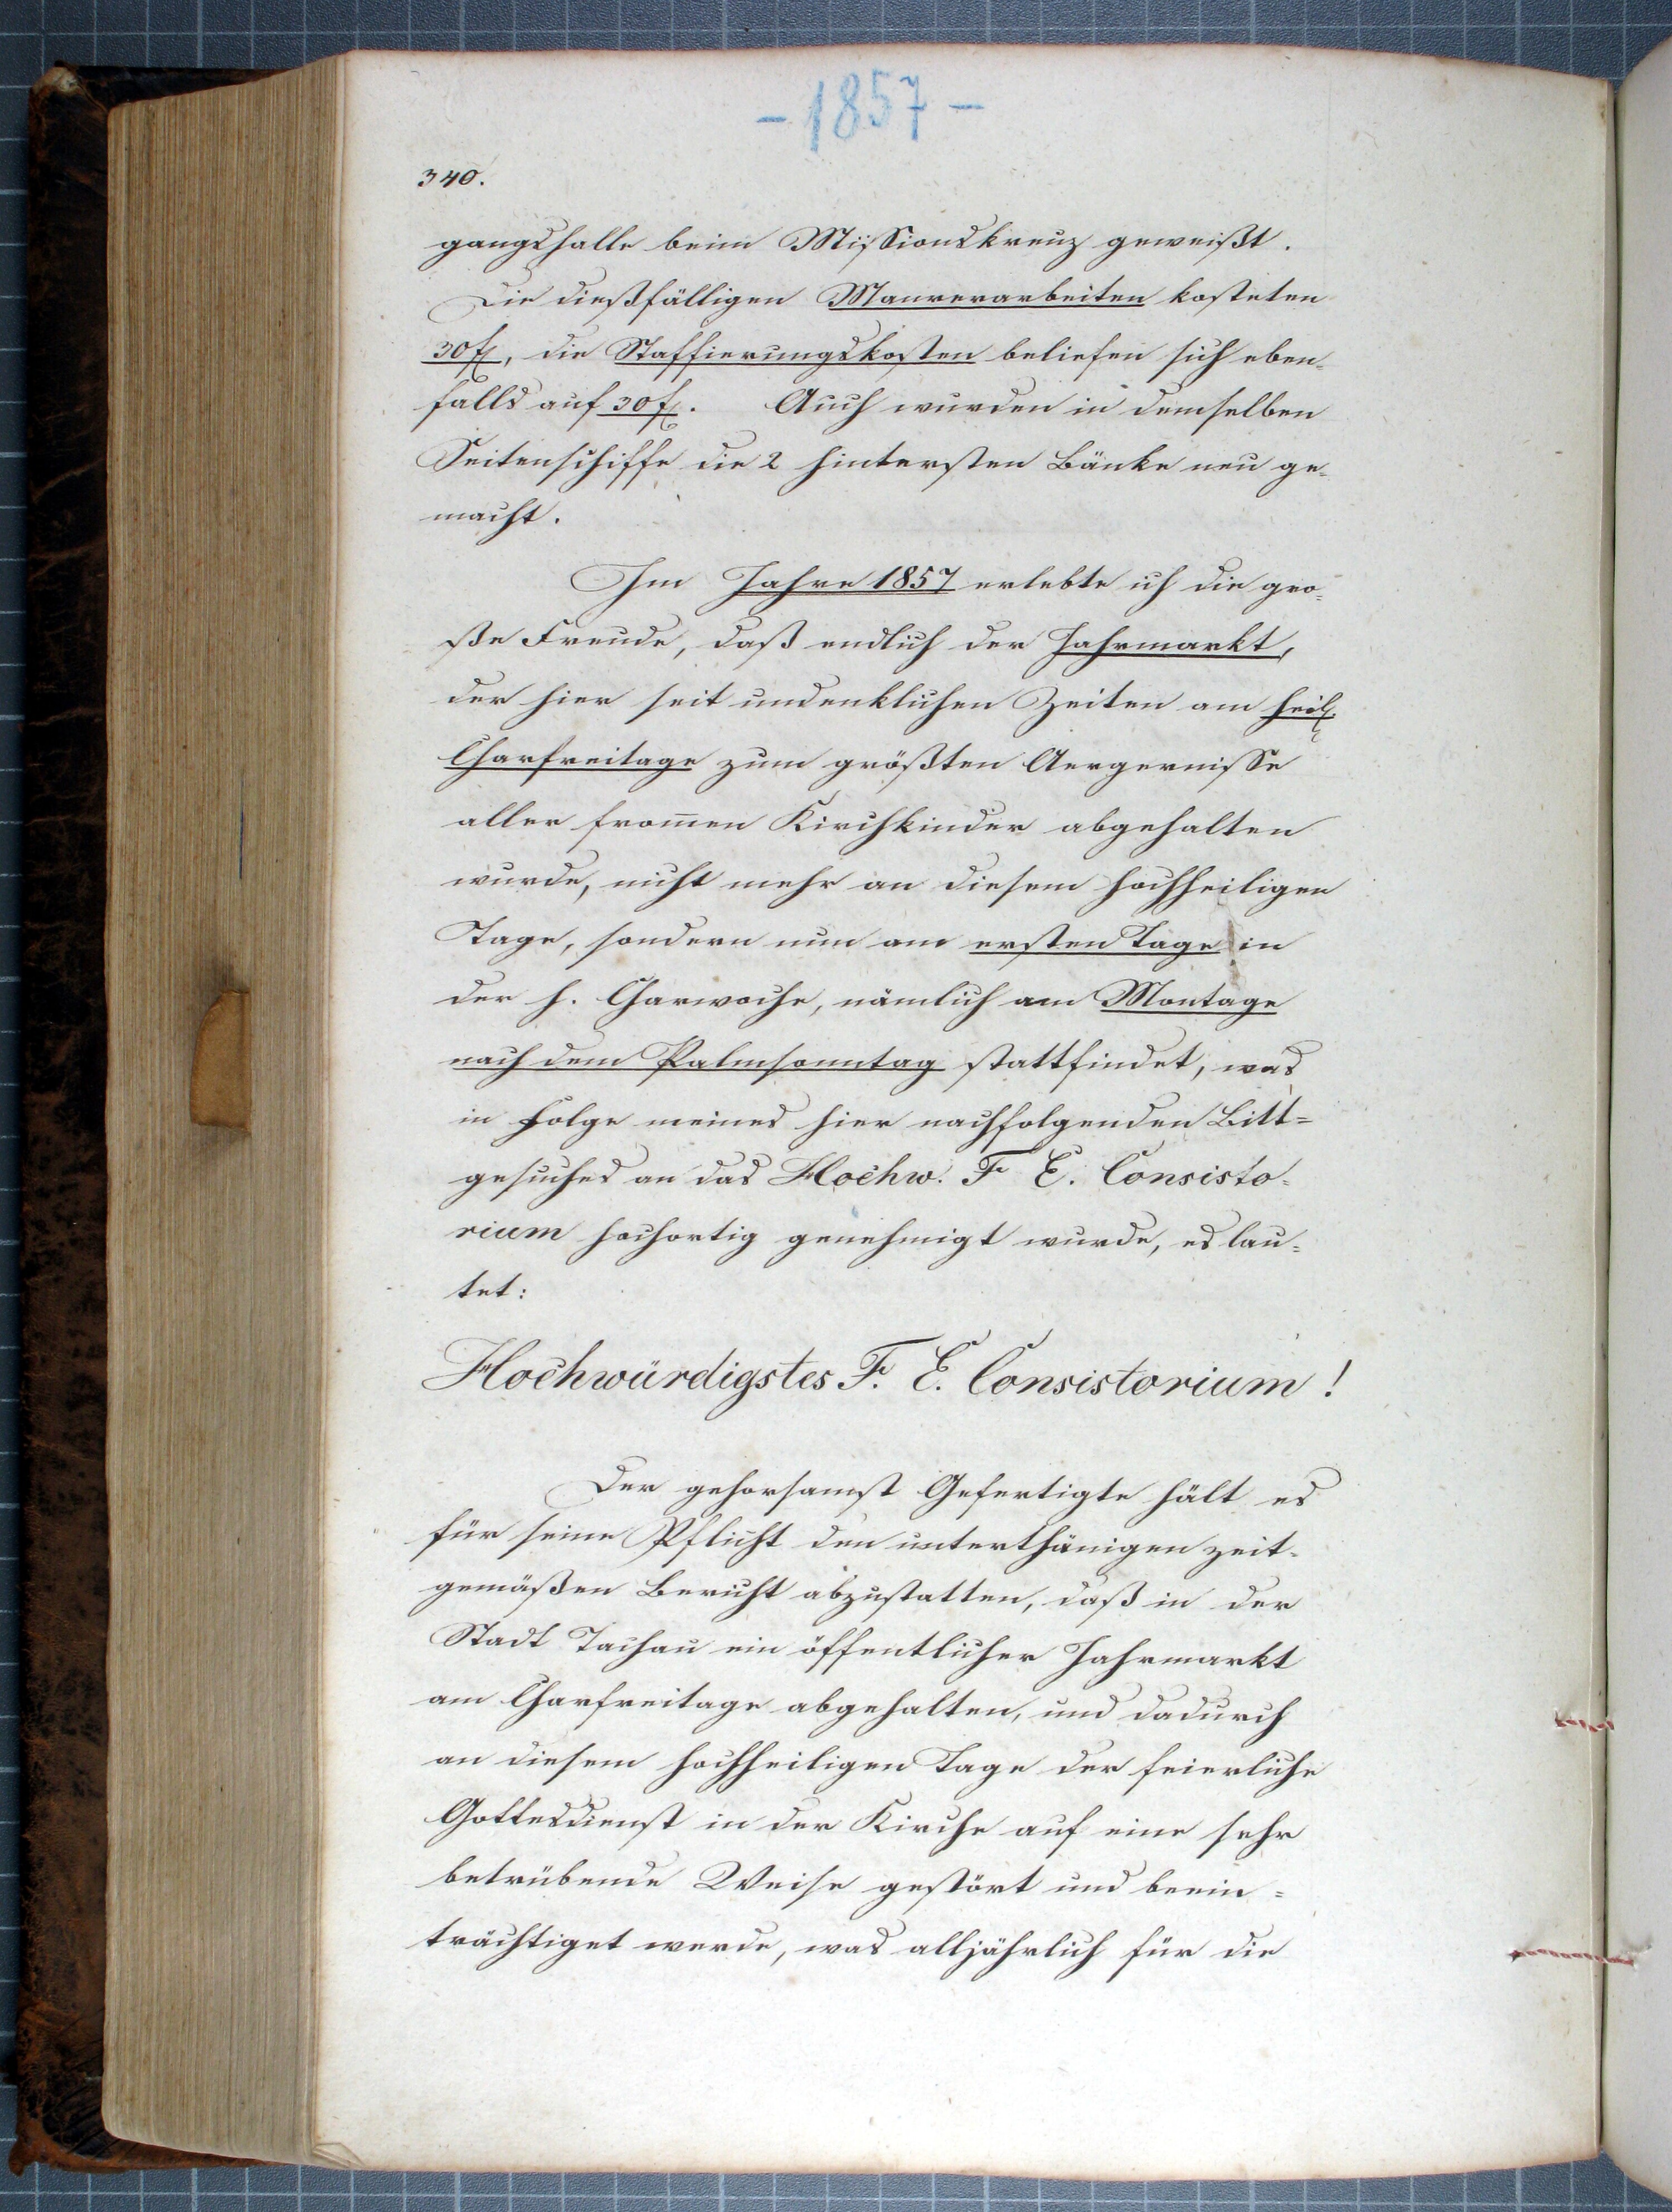 - 1857 -
340.
gangshalle beim Missionskreuz geweißt.
Die dießfälligen Maurerarbeiten kosteten
30 fl, die Staffierungskosten beliefen sich eben-
falls auf 30 fl. Auch wurden in demselben
Seitenschiffe die 2 hintersten Bänke neu ge-
macht.
Im Jahre 1857 erlebte ich die gro-
ße Freude, daß endlich der Jahrmarkt,
der hier seit undenklichen Zeiten am heil.
Charfreitage zum größten Aergernisse
aller from̅en Kirchkinder abgehalten
wurde, nicht mehr an diesem hochheiligen
Tage, sondern nun am ersten Tage in
der h. Charwoche, nämlich am Montage
nach dem Palmsonntag stattfindet, was
in Folge meines hier nachfolgenden Bitt=
gesuches an das Hochw. F. E. Consisto-
rium hochortig genehmigt wurde, es lau-
tet:
Hochwürdigstes F. E. Consistorium!
Der gehorsamst Gefertigte hält es
für seine Pflicht den unterthänigen zeit-
gemäßen Bericht abzustatten, daß in der
Stadt Tachau ein öffentlicher Jahrmarkt
am Charfreitage abgehalten, und dadurch
an diesem hochheiligen Tage der feierliche
Gottesdienst in der Kirche auf eine sehr
betrübende Weise gestört und beein=
trächtiget werde, was alljährlich für die